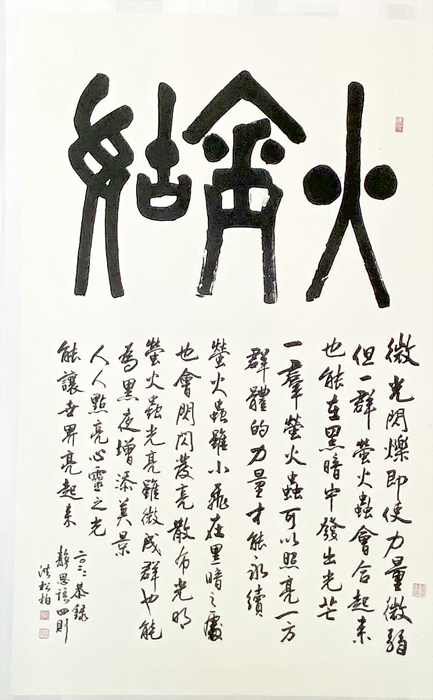 火金姑
微光閃爍即使力量微弱
但一群螢火蟲會合起來
也能在黑暗中發出光芒
一羣螢火蟲可以照亮一方
群體的力量才能永續
螢火蟲雖小飛在黑暗之處
也會閃閃發亮散布光明
螢火蟲光亮雖微成群也能
為黑夜增添美景
人人點亮心靈之光
能讓世界亮起來
恭錄
靜思語四則
洪松柏